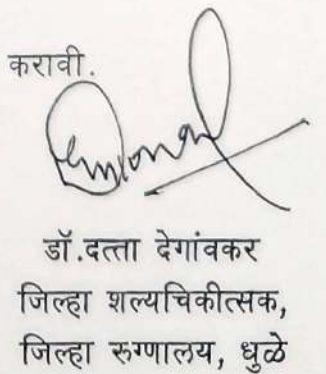 करावी.
डॉ.दत्ता देगांवकर
जिल्हा शल्यचिकीत्सक,
जिल्हा रुग्णालय, धुळे